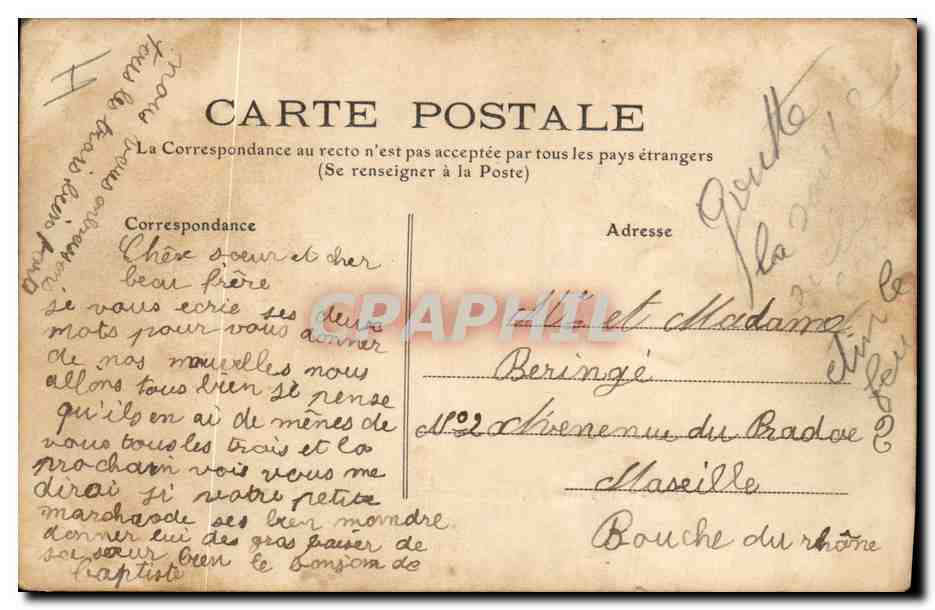 CARTE POSTALE
La Correspondance au recto n'est pas acceptée par tous les pays étrangers
(Se renseigner à la Poste)
Correspondance
Chère soeur et cher
beau frère
je vous ecrie ses deux
mots pour vous donner
de nos nouvelles nous
allons tous bien je pense
qu'ils en ai de mênes de
vous tous les trois et la
prochain vois vous me
dirai si votre petite
marchaode ses bien mondre
donner lui des gros baiser de
sa soeur bien le bonjom de
baptiste
nous vous
tous les trois bien fort
Adresse
Mr et Madame
Beringé
No 2 Avenenue du Pradoe
Maseille
Bouche du rhône
goutte
la
CRAPHIL